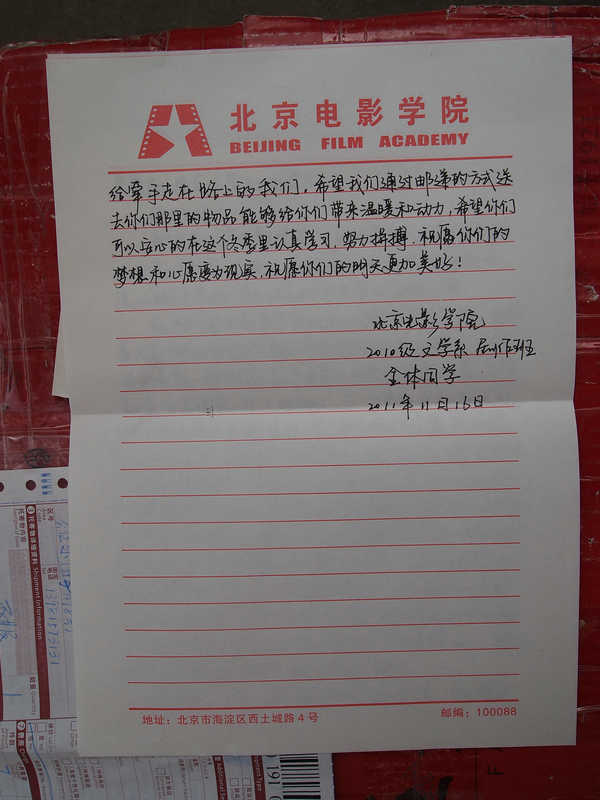 北京电影学院
BEIJING FILM ACADEMY
给牵手走在路上的我们，希望我们通过邮递的方式送
去你们那里的物品能够给你们带来温暖和动力，希望你们
可以安心的在这个冬季里认真学习，努力拼搏，祝愿你们的
梦想和心愿变为现实，祝愿你们的明天更加美好！
北京电影学院
2010级文学系剧作班
全体同学
2011年11月16日
地址：北京市海淀区西土城路4号
邮编：100088
托寄物详细资料 Shipment Information
托寄物内容
数量
191